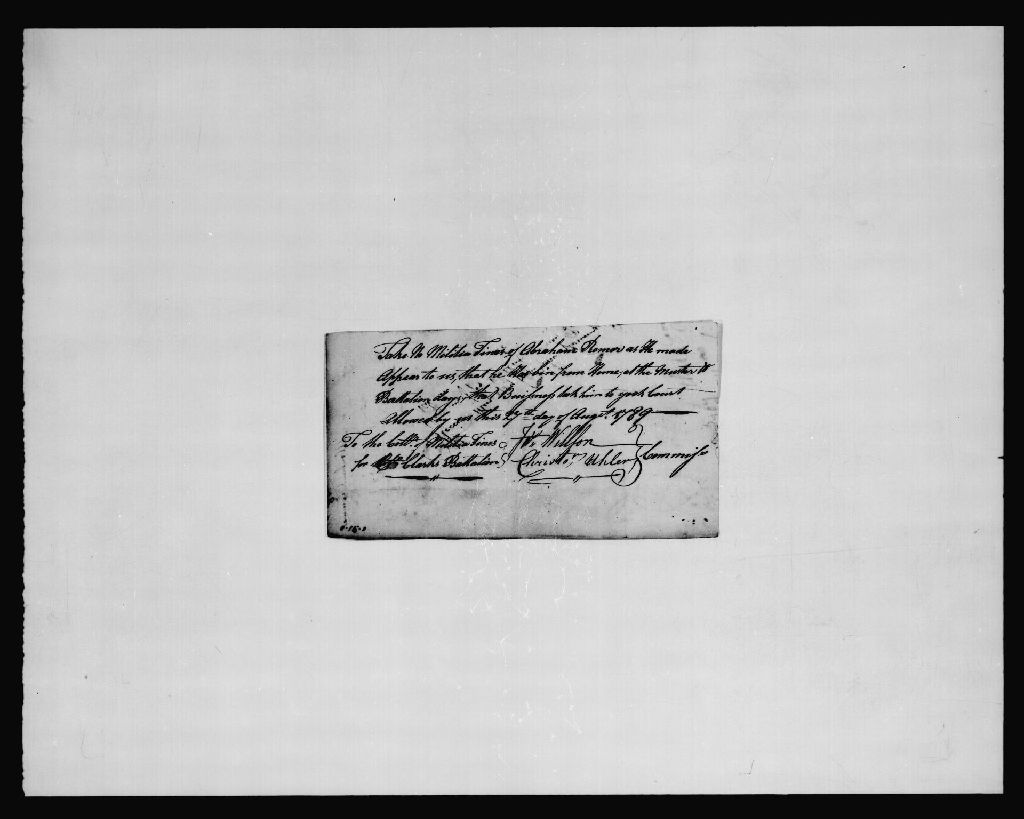 Take the Militia Fines of Abraham Romer as He made
Appear to us, that he Has bin from Home, at the Muster &
Battalion days, that Buissness took him to york Court
Allowed by us this 17th day of Augst. 1789
To the Collr. of Militia Fines
for Clarks Battalion
Wm. Willson
Christor. Uhler
Commiss